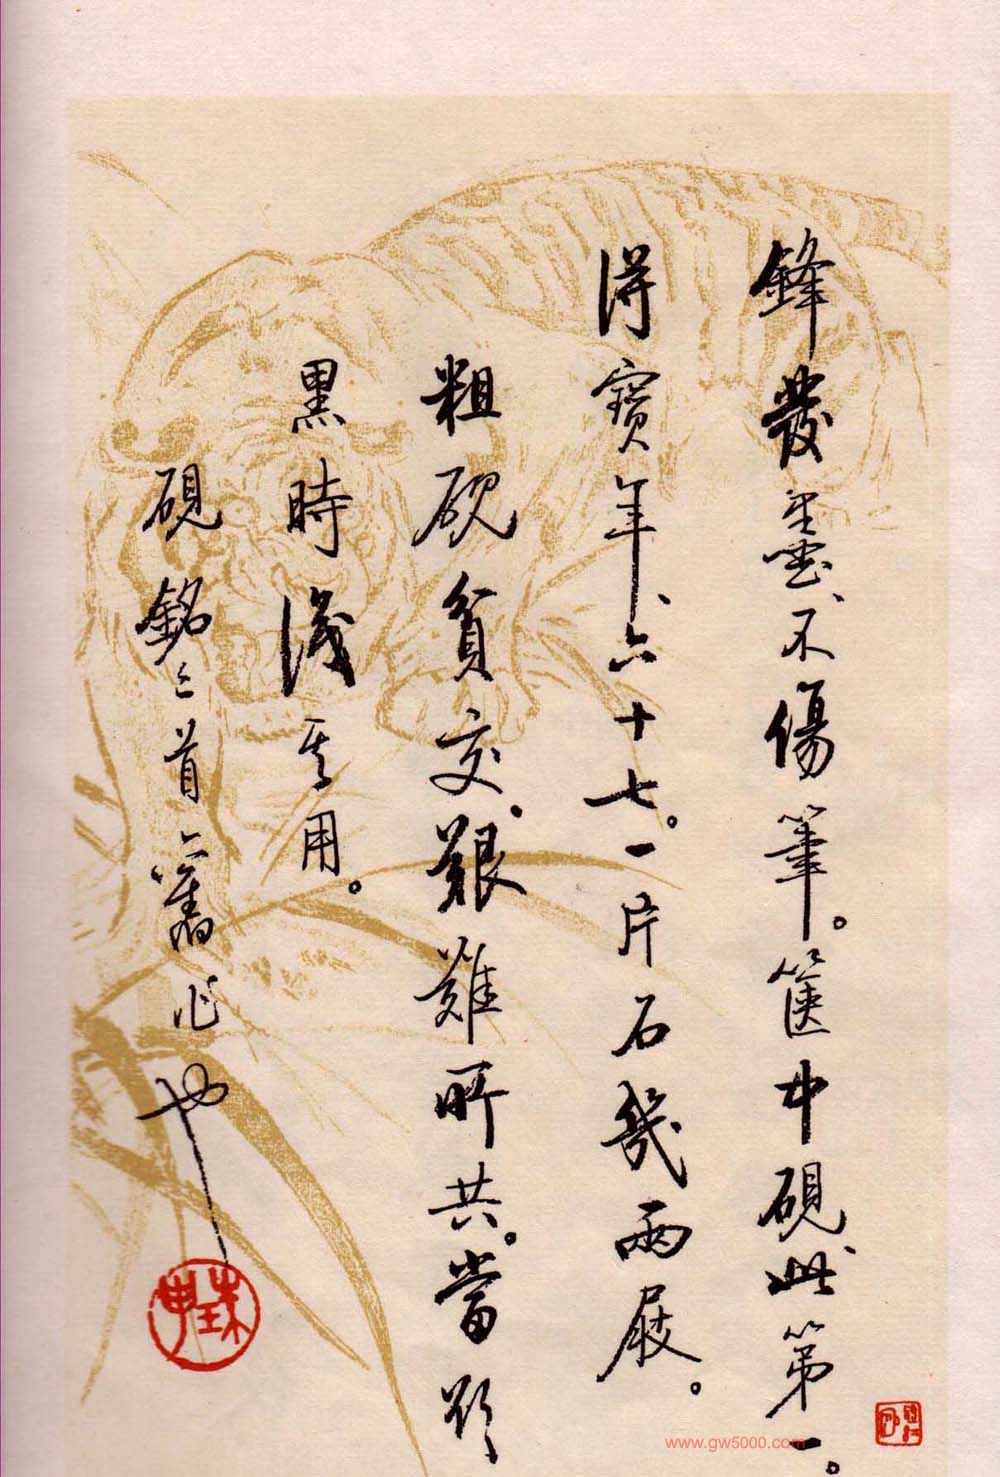 鋒發墨、不傷筆。篋中硯此第一。
得寶年、六十七。一片石幾兩屐。
粗硯貧交、艱難所共、當欲
黑時識其用。
硯銘首舊作也
珠申
www.gw5000.com